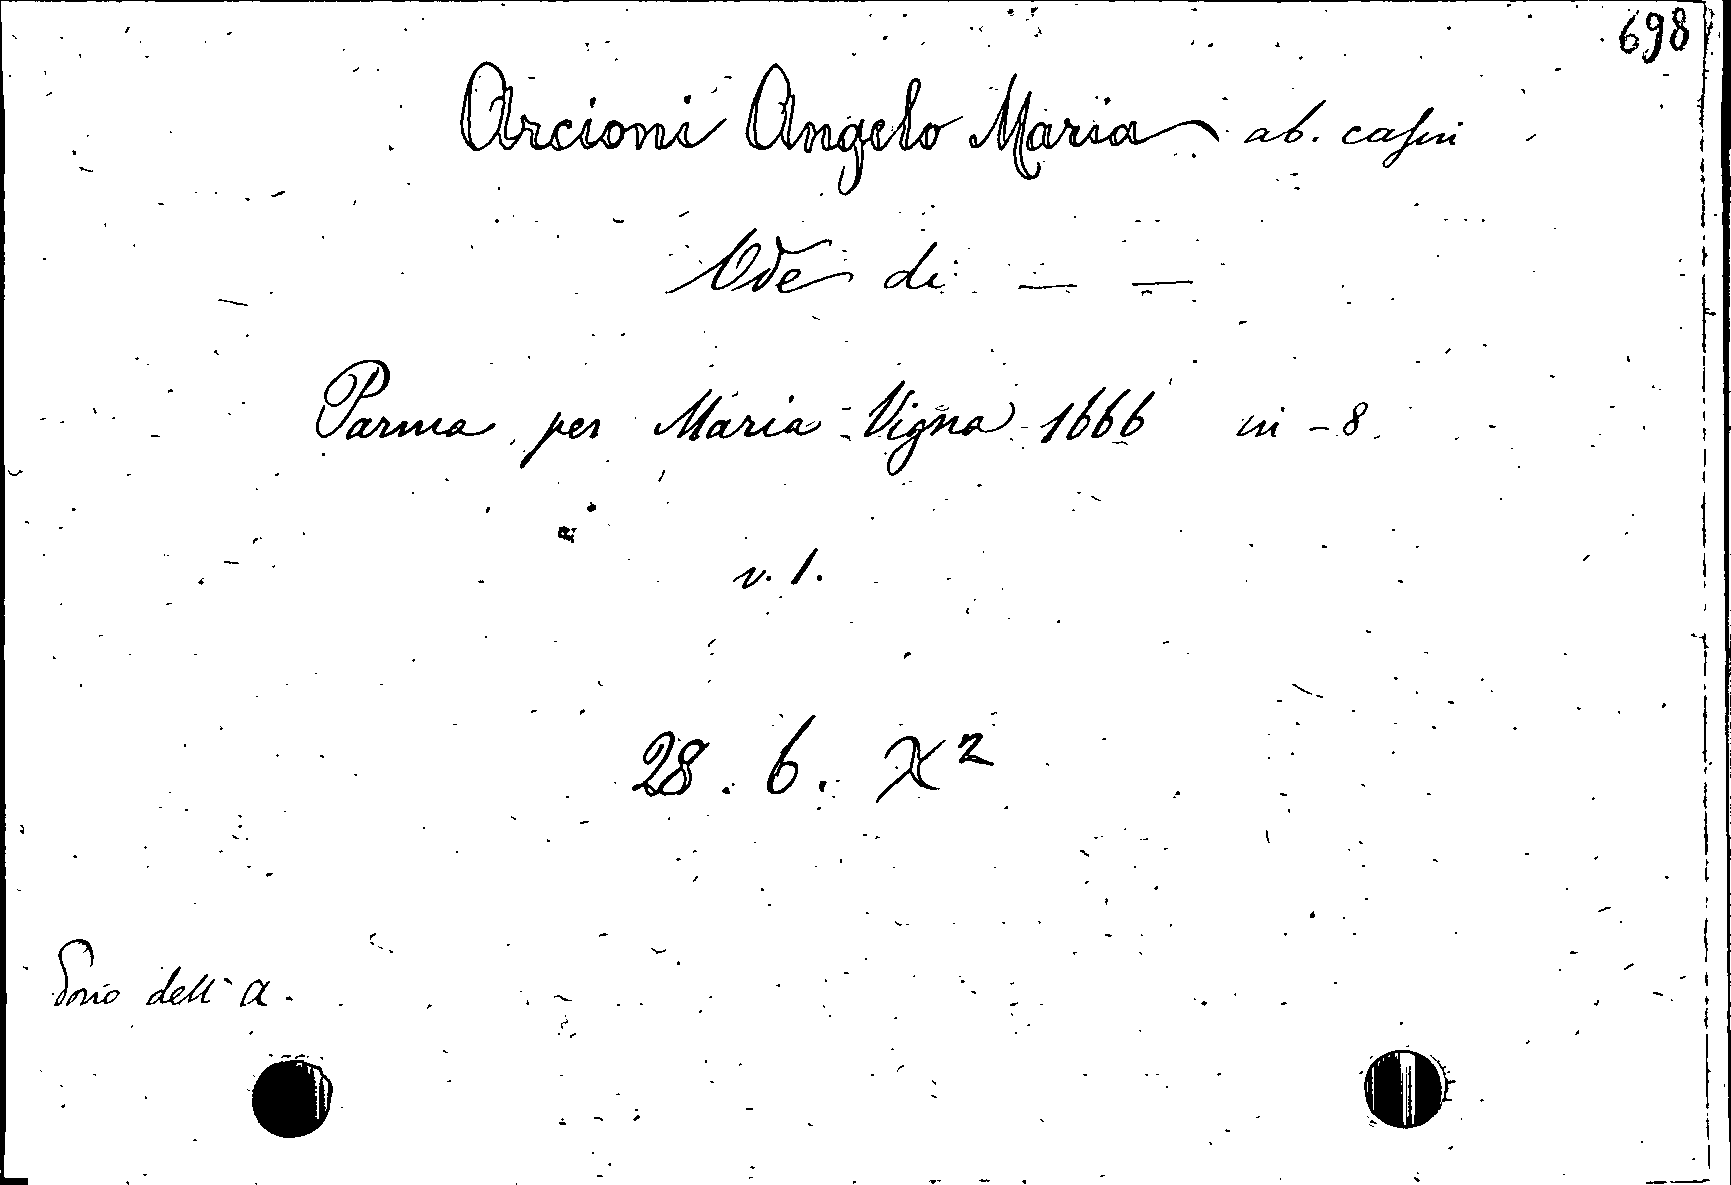 698
Arcioni Angelo Maria ab. cassin
Ode di — —
Parma per Maria Vigna 1666 in-8.
v. 1.
28. 6. X²
dell' A.